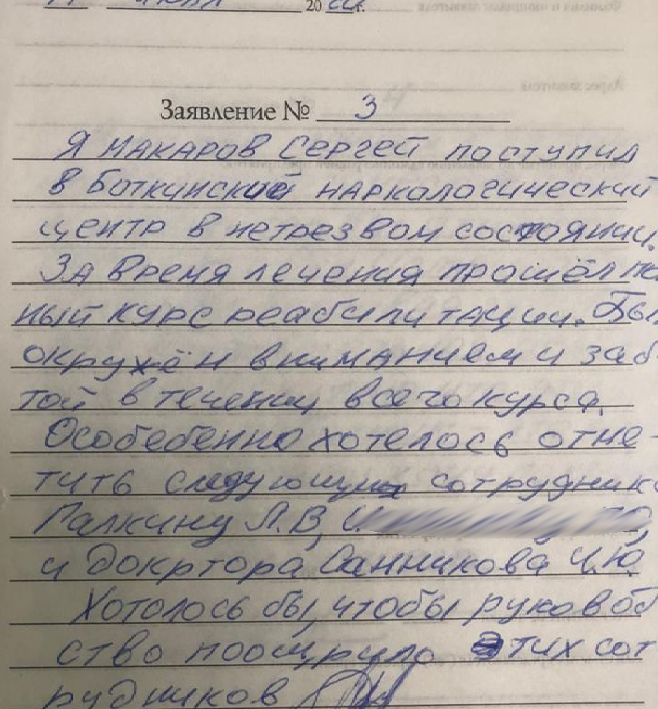 20
Заявление № 3
Я Макаров Сергей поступил
в Боткинский наркологический
центр в нетрезвом состоянии.
За время лечения прошёл по
ный курс реабилитации. Бы
окружён вниманием и заб
той в течении всего курса.
Особебенно хотелось отме-
тить следующих сотрудник
Галкину Л.В,
и докртора Санникова И.Ю.
Хотолось бы, чтобы руковод
ство поощрило этих сот
рудников